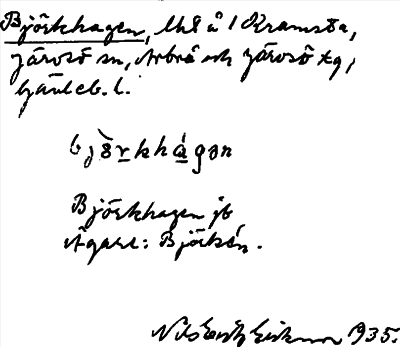 Björkhagen, lht å 1 Kramsta,
Järvsö sn, Arbrå och Järvsö tg,
Gävleb. l.
björkhágen
Björkhagen jb
Ägare: Björkén.
Nils Erik Eriksson 1935.